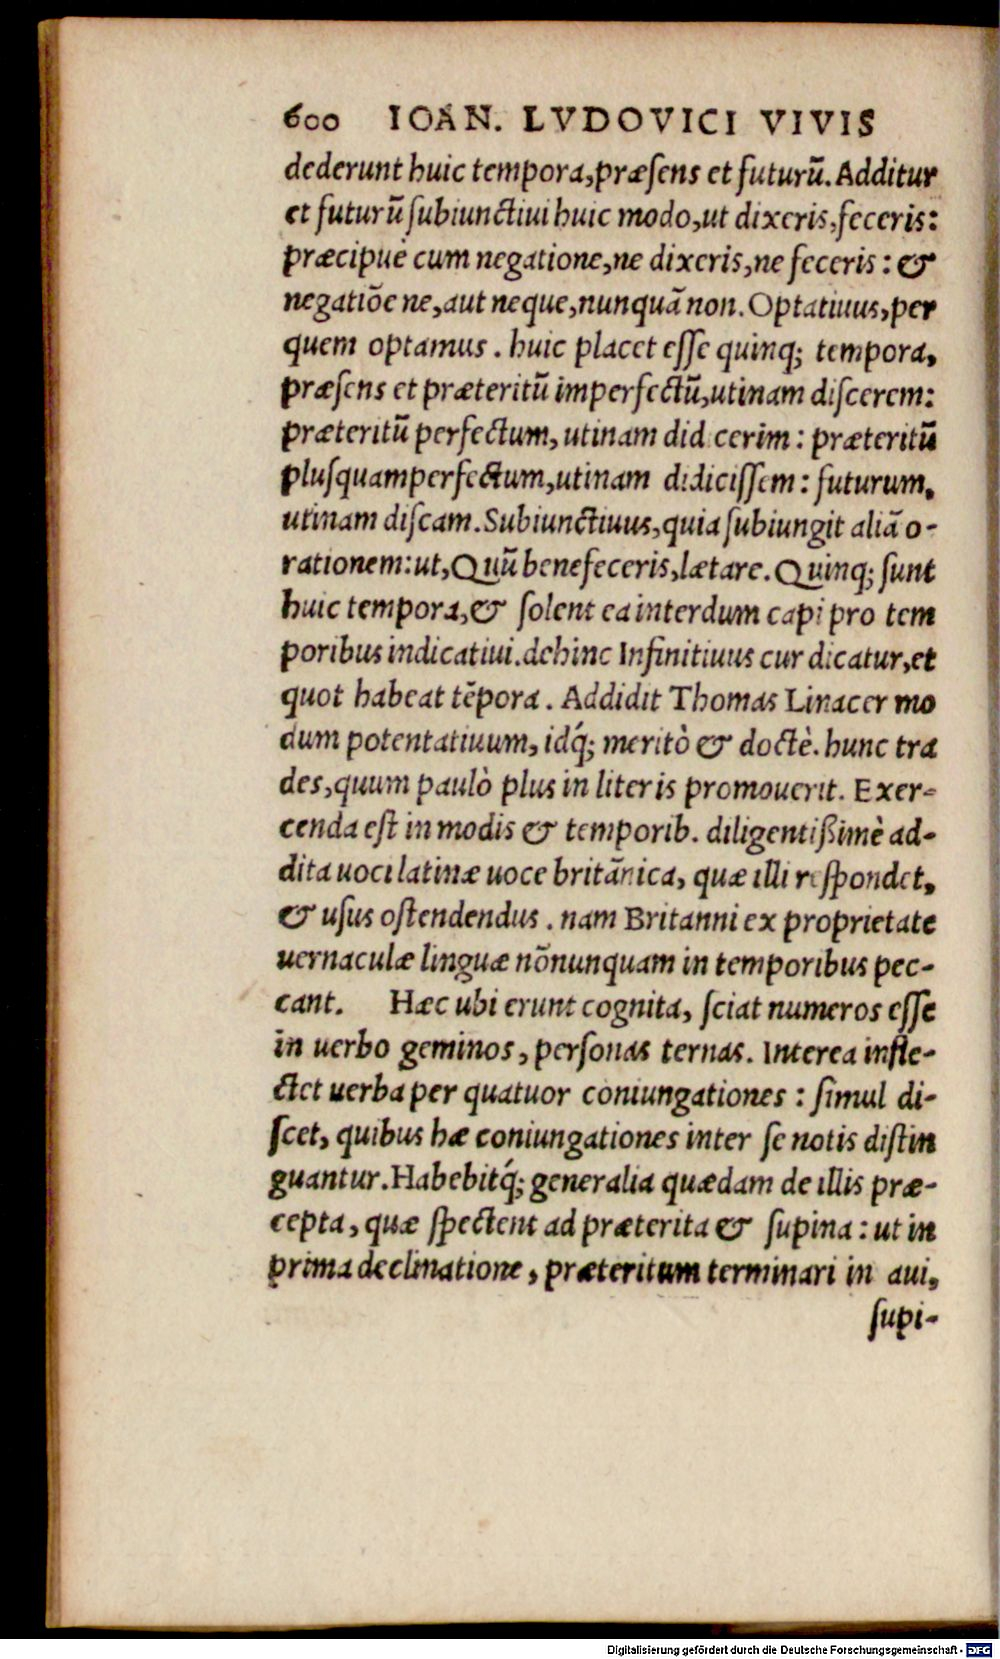 600 IOAN. LVDOVICI VIVIS
dederunt huic tempora, præſens et futurū. Additur
et futurū ſubiunctiui huic modo, ut dixeris, feceris:
præcipuè cum negatione, ne dixeris, ne feceris: &
negatiōe ne, aut neque, nunquā non. Optatiuus, per
quem optamus. huic placet eſſe quinq; tempora,
præſens et præteritū imperfectū, utinam diſcerem:
præteritū perfectum, utinam didicerim: præteritū
pluſquamperfectum, utinam didiciſſem: futurum,
utinam diſcam. Subiunctiuus, quia ſubiungit aliā o-
rationem: ut, Quū benefeceris, lætare. Quinq; ſunt
huic tempora, & ſolent ea interdum capi pro tem
poribus indicatiui. dehinc Infinitiuus cur dicatur, et
quot habeat tēpora. Addidit Thomas Linacer mo
dum potentatiuum, idq́; meritò & doctè. hunc tra
des, quum paulò plus in literis promouerit. Exer-
cenda eſt in modis & temporib. diligentißimè ad-
dita uoci latinæ uoce britānica, quæ illi reſpondet,
& uſus oſtendendus. nam Britanni ex proprietate
uernaculæ linguæ nōnunquam in temporibus pec-
cant. Hæc ubi erunt cognita, ſciat numeros eſſe
in uerbo geminos, perſonas ternas. Interea infle-
ctet uerba per quatuor coniungationes: ſimul di-
ſcet, quibus hæ coniungationes inter ſe notis diſtin
guantur. Habebitq́; generalia quædam de illis præ-
cepta, quæ ſpectent ad præterita & ſupina: ut in
prima declinatione, præteritum terminari in aui,
ſupi-
Digitalisierung gefördert durch die Deutsche Forschungsgemeinschaft - DFG